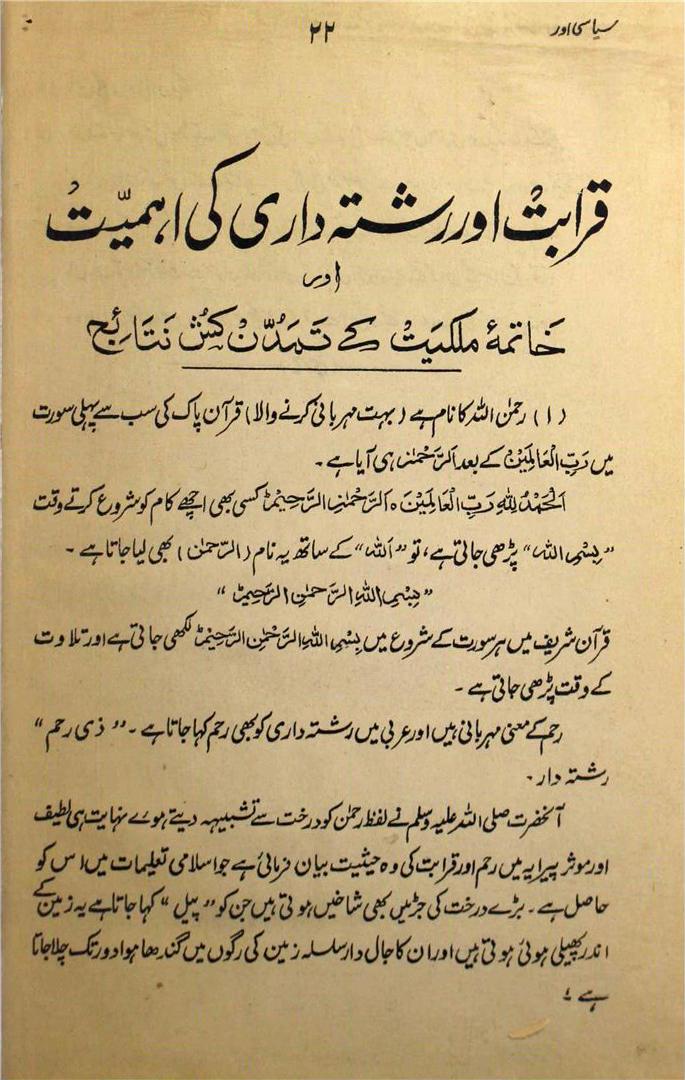 سیاسی اور
۲۲
قرابت اور رشتہ داری کی اہمیّت
اور
خاتمۂ ملکیت کے تمدّن کُش نتائج
(۱) رحمٰن اللہ کا نام ہے (بہت مہربانی کرنے والا) قرآن پاک کی سب سے پہلی سورت
میں رَبِّ الْعَالَمِیْنَ کے بعد اَلرَّحْمٰن ہی آیا ہے۔
اَلْحَمْدُ لِلّٰہِ رَبِّ الْعَالَمِیْنَ ہ الرَّحْمٰنِ الرَّحِیْمِ کسی بھی اچھے کام کو شروع کرتے وقت
”بِسْمِ اللہ“ پڑھی جاتی ہے، تو ”اللہ“ کے ساتھ یہ نام (الرَّحْمٰن) بھی لیا جاتا ہے۔
”بِسْمِ اللہِ الرَّحْمٰنِ الرَّحِیْمِ“
قرآن شریف میں ہر سورت کے شروع میں بِسْمِ اللہِ الرَّحْمٰنِ الرَّحِیْمِ لکھی جاتی ہے اور تلاوت
کے وقت پڑھی جاتی ہے۔
رحم کے معنی مہربانی ہیں اور عربی میں رشتہ داری کو بھی رحم کہا جاتا ہے۔ ”ذی رحم“
رشتہ دار۔
آنحضرت صلی اللہ علیہ وسلم نے لفظ رحمٰن کو درخت سے تشبیہہ دیتے ہوے نہایت ہی لطیف
اور موثر پیرایہ میں رحم اور قرابت کی وہ حیثیت بیان فرمائی ہے جو اسلامی تعلیمات میں اس کو
حاصل ہے۔ بڑے درخت کی جڑیں بھی شاخیں ہوتی ہیں جن کو ”پیل“ کہا جاتا ہے یہ زمین کے
اندر پھیلی ہوئی ہوتی ہیں اور ان کا جال دار سلسلہ زمین کی رگوں میں گندھا ہوا دور تک چلا جاتا
ہے؛